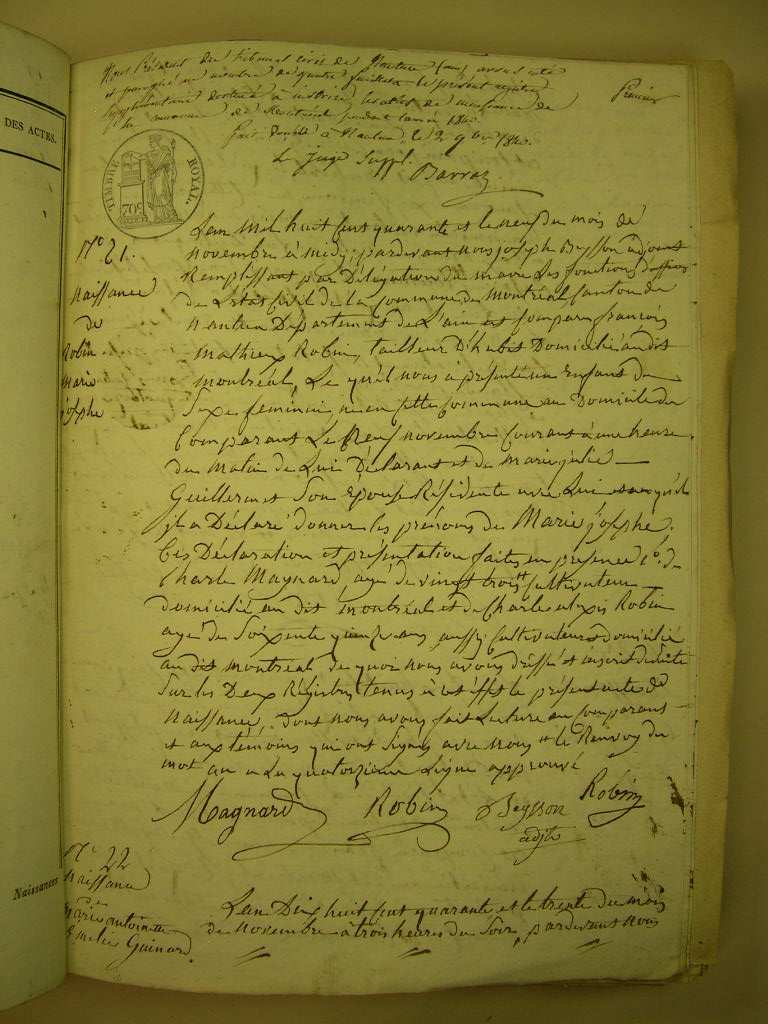 DES ACTES.
Nous Président du tribunal civil de Nantua (ain) avons coté
et paraphé au nombre de quatre feuillets le présent registre
supplémentaire destiné à inscrire les actes de naissance de
la commune de Montréal pendant l'année 1840.
fait double à Nantua le 2 9bre 1840.
Premier
le juge suppl.
Barraz
TIMBRE ROYAL
70c
N° 21.
Naissance
de
Robin
Marie
josephe
L'an Mil huit cent quarante et le neuf du mois de
novembre à midy, pardevant nous joseph Beysson adjoint
Remplissant par Délégation du maire Les fonctions d'officier
de L'état Civil de la Commune de Montréal Canton de
Nantua Département de L'ain est comparu françois
Mathieux Robin, tailleur D'habis Domicilié audit
montréal, Le quel nous a présenté un Enfant du
Sexe féminin, né en cette Commune au Domicile du
Comparant Le Neuf novembre Courant à une heure
du Matin de Lui Déclarant et de marie julie
Guillermet Son épouse Résidente avec Lui
il a Déclaré donner les prénoms de Marie josephe.
Ces Déclaration et présentation faites en présence 1°. de
Charle Maynard agé de vingt trois Cultivateur
domicilié au dit montréal et de Charle alexis Robin
agé de Soixente quinze ans aussi Cultivateur domicilié
au dit montréal de quoi nous avons dressé et inscrit desuite
Sur les Deux Régistres tenus à cet effet le présent acte de
Naissance, dont nous avons fait Lecture au Comparant
et aux témoins qui ont Signés avec Nous et le Renvoy du
mot au a La quatorzieme Ligne approuvé
Magnard Robin Beysson Robin
adjt
Naissances
N° 22
Naissance
de
Marie antoinette
Emelie Guinard.
L'an Dix huit cent quarante et le trente du mois
de Novembre à trois heures du Soir, pardevant nous